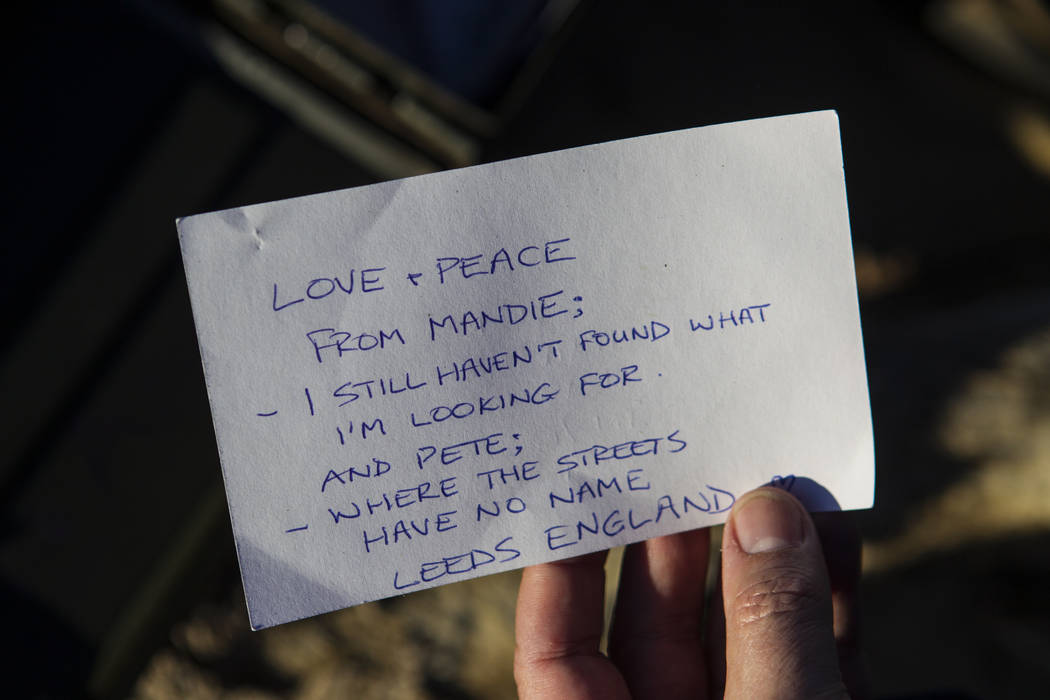 LOVE + PEACE
FROM MANDIE;
- I STILL HAVEN'T FOUND WHAT
I'M LOOKING FOR.
AND PETE;
- WHERE THE STREETS
HAVE NO NAME
LEEDS ENGLAND